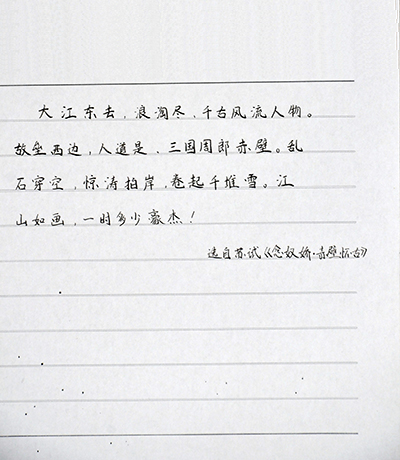 大江东去，浪淘尽，千古风流人物。
故垒西边，人道是、三国周郎赤壁。乱
石穿空，惊涛拍岸，卷起千堆雪。江
山如画，一时多少豪杰！
选自苏试《念奴娇·赤壁怀古》